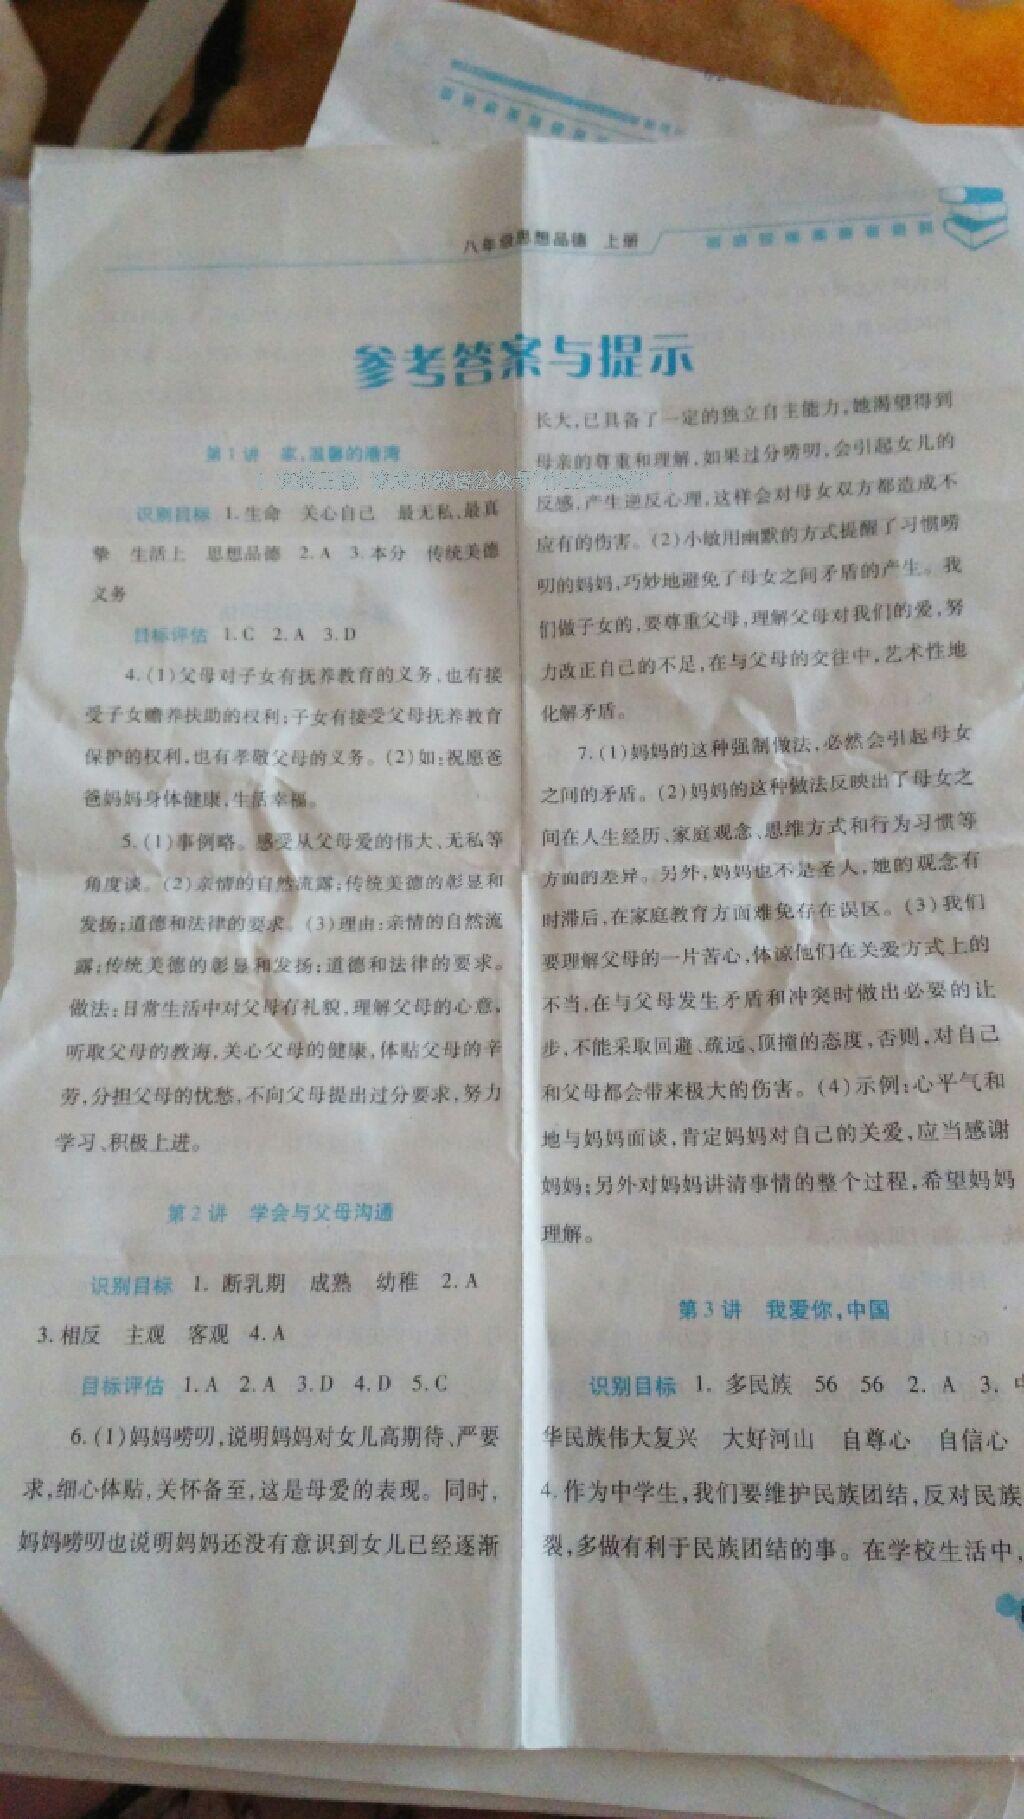 八年级思想品德 上册
参考答案与提示
第1讲 家,温馨的港湾
识别目标 1.生命 关心自己 最无私、最真
挚 生活上 思想品德 2.A 3.本分 传统美德
义务
目标评估 1.C 2.A 3.D
4.(1)父母对子女有抚养教育的义务,也有接
受子女赡养扶助的权利;子女有接受父母抚养教育
保护的权利,也有孝敬父母的义务。(2)如:祝愿爸
爸妈妈身体健康,生活幸福。
5.(1)事例略。感受从父母爱的伟大、无私等
角度谈。(2)亲情的自然流露;传统美德的彰显和
发扬;道德和法律的要求。(3)理由:亲情的自然流
露;传统美德的彰显和发扬;道德和法律的要求。
做法:日常生活中对父母有礼貌,理解父母的心意,
听取父母的教海,关心父母的健康,体贴父母的辛
劳,分担父母的忧愁,不向父母提出过分要求,努力
学习、积极上进。
第2讲 学会与父母沟通
识别目标 1. 断乳期 成熟 幼稚 2.A
3.相反 主观 客观 4.A
目标评估 1.A 2.A 3.D 4.D 5.C
6.(1)妈妈唠叨,说明妈妈对女儿高期待、严要
求,细心体贴,关怀备至,这是母爱的表现。同时,
妈妈唠叨也说明妈妈还没有意识到女儿已经逐渐
长大,已具备了一定的独立自主能力,她渴望得到
母亲的尊重和理解,如果过分唠叨,会引起女儿的
反感,产生逆反心理,这样会对母女双方都造成不
应有的伤害。(2)小敏用幽默的方式提醒了习惯唠
叨的妈妈,巧妙地避免了母女之间矛盾的产生。我
们做子女的,要尊重父母,理解父母对我们的爱,努
力改正自己的不足,在与父母的交往中,艺术性地
化解矛盾。
7.(1)妈妈的这种强制做法,必然会引起母女
之间的矛盾。(2)妈妈的这种做法反映出了母女之
间在人生经历、家庭观念、思维方式和行为习惯等
方面的差异。另外,妈妈也不是圣人,她的观念有
时滞后,在家庭教育方面难免存在误区。(3)我们
要理解父母的一片苦心,体谅他们在关爱方式上的
不当,在与父母发生矛盾和冲突时做出必要的让
步,不能采取回避、疏远、顶撞的态度,否则,对自己
和父母都会带来极大的伤害。(4)示例:心平气和
地与妈妈面谈,肯定妈妈对自己的关爱,应当感谢
妈妈;另外对妈妈讲清事情的整个过程,希望妈妈
理解。
第3讲 我爱你,中国
识别目标 1. 多民族 56 56 2. A 3. 中
华民族伟大复兴 大好河山 自尊心 自信心
4.作为中学生,我们要维护民族团结,反对民族
裂,多做有利于民族团结的事。在学校生活中,